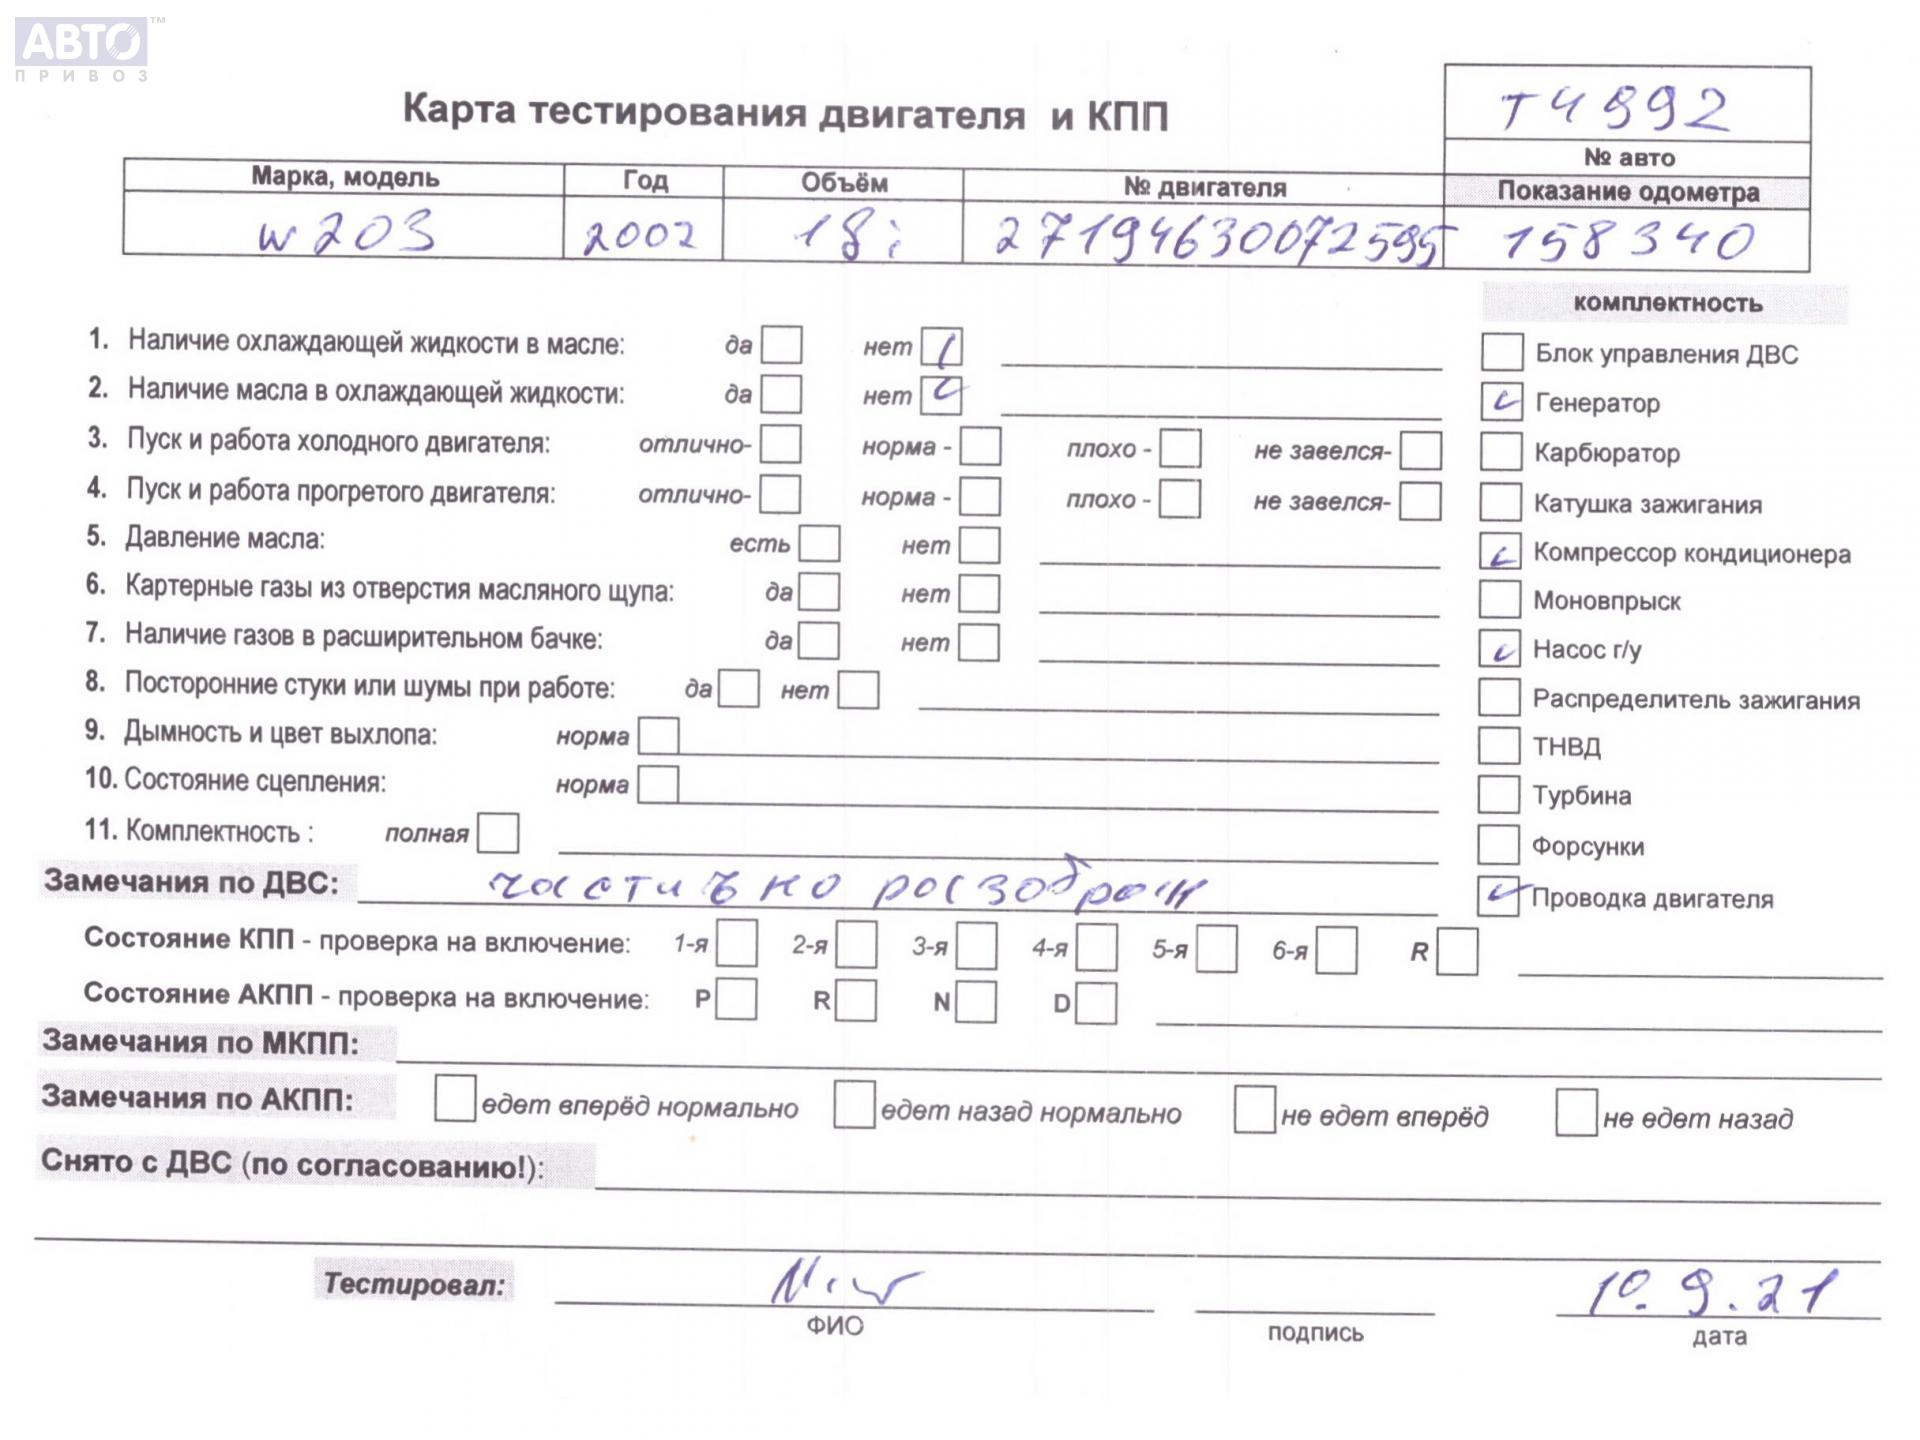 АВТО™
ПРИВОЗ
Карта тестирования двигателя и КПП
т4992
№ авто
Марка, модель Год Объём № двигателя Показание одометра
w203 2002 18i 27194630072595 158340
комплектность
1. Наличие охлаждающей жидкости в масле: да нет
Блок управления ДВС
2. Наличие масла в охлаждающей жидкости: да нет
Генератор
3. Пуск и работа холодного двигателя: отлично- норма - плохо - не завелся-
Карбюратор
4. Пуск и работа прогретого двигателя: отлично- норма - плохо - не завелся-
Катушка зажигания
5. Давление масла: есть нет
Компрессор кондиционера
6. Картерные газы из отверстия масляного щупа: да нет
Моновпрыск
7. Наличие газов в расширительном бачке: да нет
Насос г/у
8. Посторонние стуки или шумы при работе: да нет
Распределитель зажигания
9. Дымность и цвет выхлопа: норма
ТНВД
10. Состояние сцепления: норма
Турбина
11. Комплектность : полная
Форсунки
Замечания по ДВС: частично разобран
Проводка двигателя
Состояние КПП - проверка на включение: 1-я 2-я 3-я 4-я 5-я 6-я R
Состояние АКПП - проверка на включение: P R N D
Замечания по МКПП:
Замечания по АКПП: едет вперёд нормально едет назад нормально не едет вперёд не едет назад
Снято с ДВС (по согласованию!):
Тестировал: 10.9.21
ФИО подпись дата